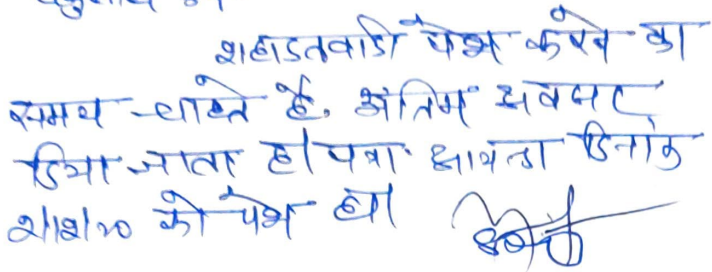 शहादतवादी पेश करने का
समय चाहते है, अंतिम अवसर
दिया जाता है। पत्रा. आयन्दा दिनांक
को पेश हो।